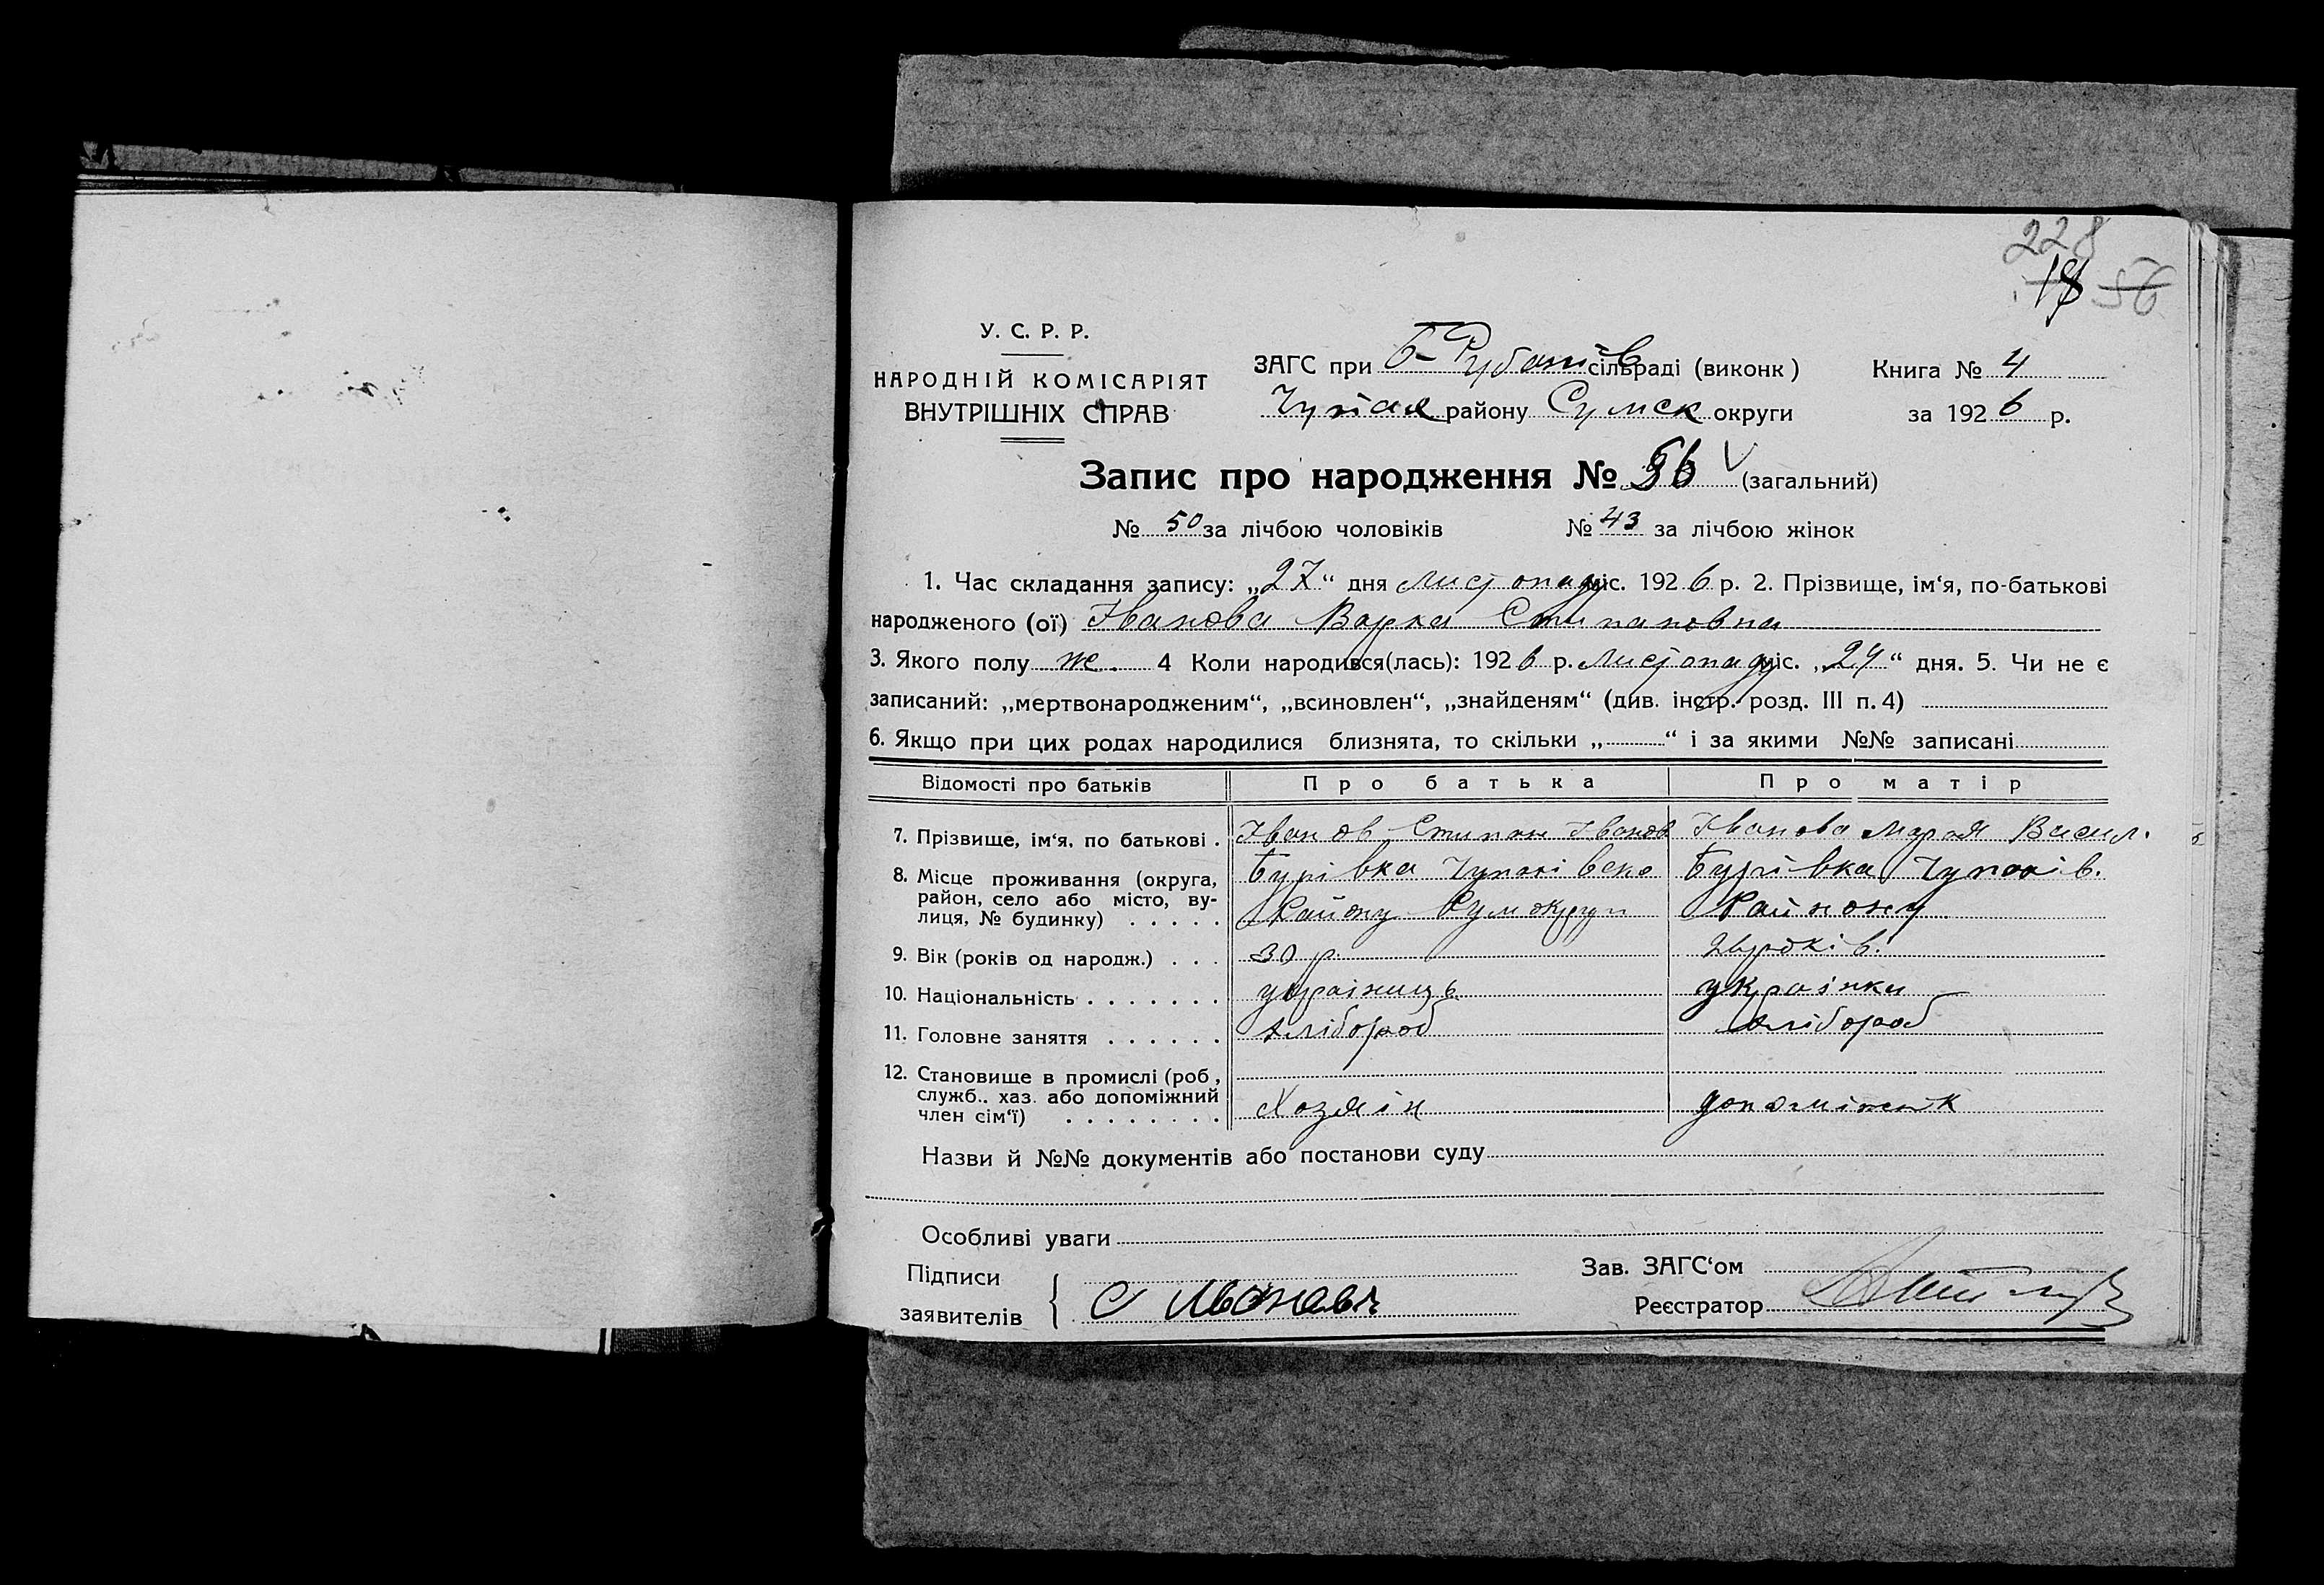 228
18 56
У. С. Р. Р.
НАРОДНІЙ КОМІСАРІЯТ
ВНУТРІШНІХ СПРАВ
ЗАГС при Б-Рубанів сільраді (виконк)
Чупах району Сумск округи
Книга № 4
за 1926 р.
Запис про народження № 56 (загальний)
№ 50 за лічбою чоловіків № 43 за лічбою жінок
1. Час складання запису: „27“ дня Листопаду міс. 1926 р. 2. Прізвище, ім‘я, по-батькові
народженого (ої) Іванова Варка Стипановна
3. Якого полу ж. 4 Коли народився(лась): 1926 р. Листопаду міс. „24“ дня. 5. Чи не є
записаний: „мертвонародженим“, „всиновлен“, „знайденям“ (див. інстр. розд. III п. 4)
6. Якщо при цих родах народилися близнята, то скільки „ “ і за якими №№ записані
Відомості про батьків Про батька Про матір
7. Прізвище, ім‘я, по батькові . Іванов Стипан Іванов Іванова Марія Васил.
8. Місце проживання (округа, район, село або місто, ву-лиця, № будинку) . . . . . Бурівка Чупахівско Бурівка Чупахів.
Району Сумокруги Району
9. Вік (років од народж.) . . . 30 р.
10. Національність . . . . . . . україниць українка
11. Головне заняття . . . . . . хлібороб хлібороб
12. Становище в промислі (роб, служб.. хаз. або допоміжний член сім‘ї) . . . . . . . . Хозяін допоміжник
Назви й №№ документів або постанови суду
Особливі уваги
Підписи
заявителів
С Иванавъ
Зав. ЗАГС‘ом
Реєстратор